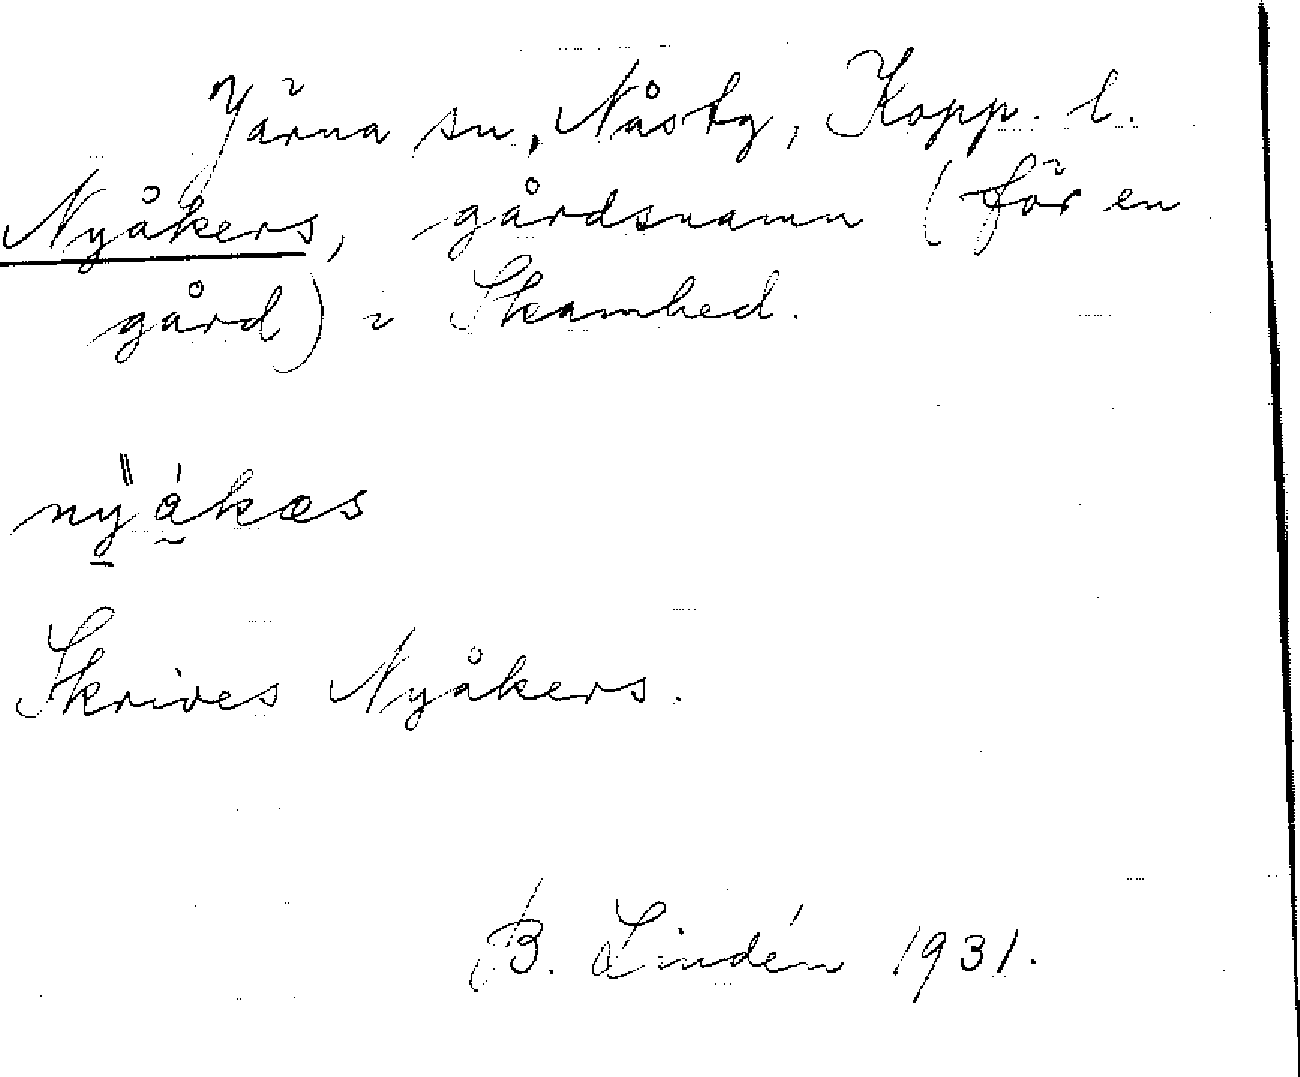 Järna sn, Nåsby, Kopp. l.
Nyåkers, gårdsnamn (för en
gård) i Skamhed.
nyåkæs
Skrives Nyåkers.
B. Lindén 1931.